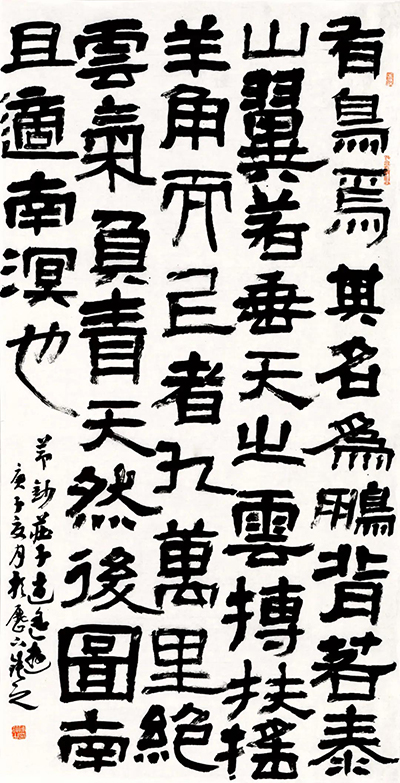 有鳥焉其名為鵬背若泰
山翼若垂天之雲摶扶搖
羊角而已者九萬里絕
雲氣負青天然後圖南
且適南溟也
節鈔莊子逍遙遊
庚子夏月於歷下